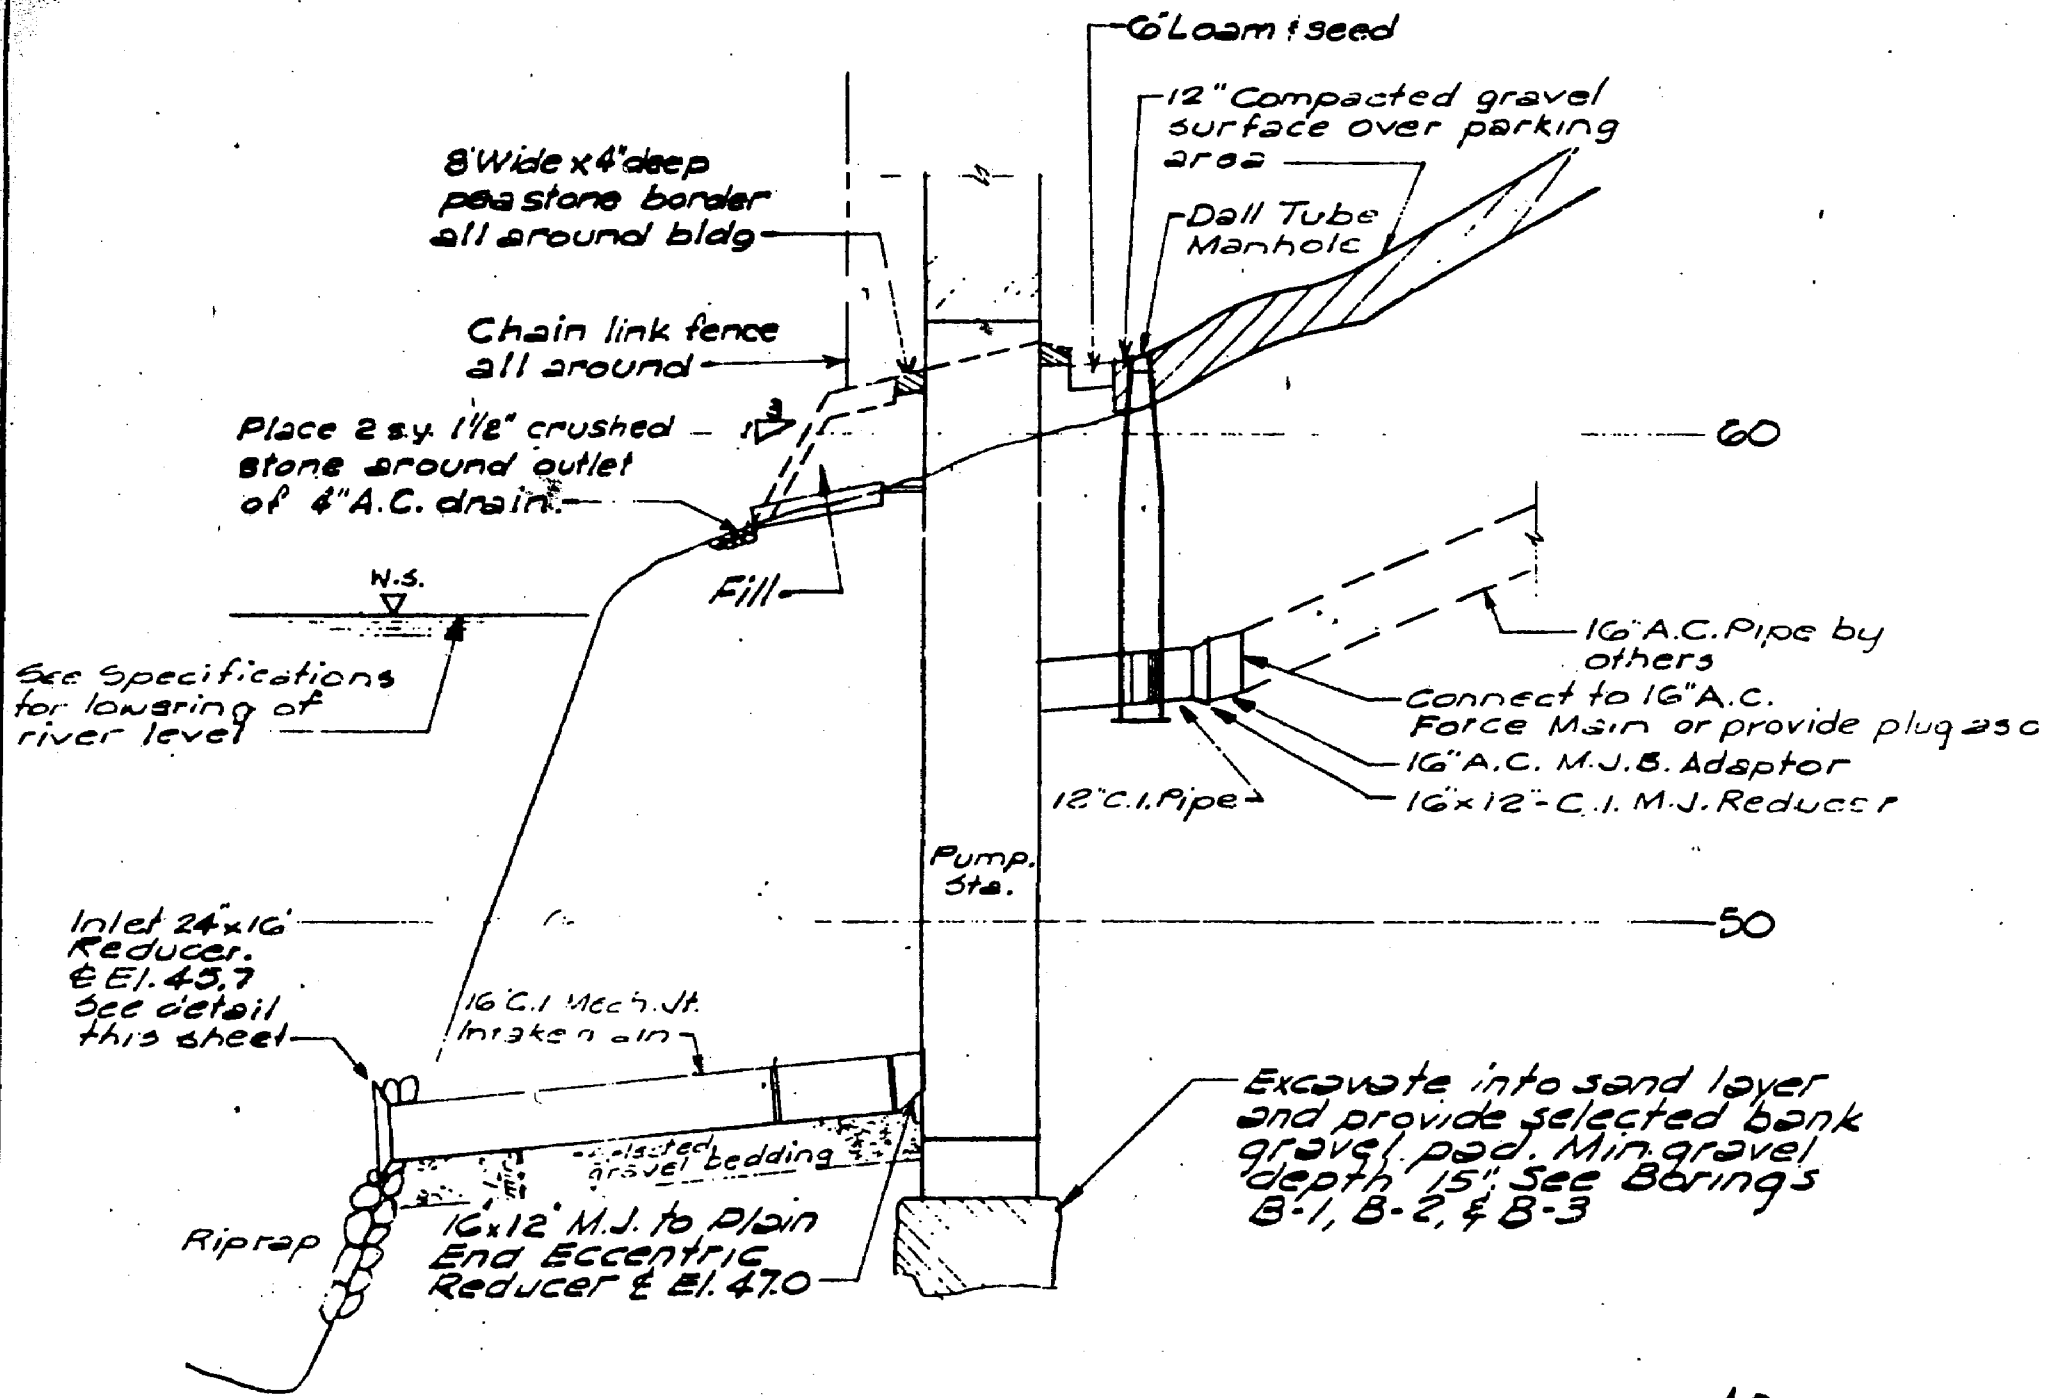 6" Loam & seed
12" Compacted gravel
surface over parking
area
8'Wide x 4"deep
pea stone border
all around bldg
Dall Tube
Manhole
Chain link fence
all around
Place 2 s.y. 1 1/2" crushed
stone around outlet
of 4" A.C. drain.
3
1
60
Fill
W.S.
See Specifications
for lowering of
river level
16" A.C. Pipe by
others
Connect to 16" A.C.
Force Main or provide plug as o
16" A.C. M.J.B. Adaptor
16"x12"-C.I. M.J. Reducer
12" C.I. Pipe
Pump.
Sta.
50
Inlet 24"x16"
Reducer.
℄ El. 45.7
See detail
this sheet
16" C.I Mech. Jt.
Intake
gravel bedding
16"x12" M.J. to Plain
End Eccentric
Reducer ℄ El. 47.0
Riprap
Excavate into sand layer
and provide selected bank
gravel pad. Min. gravel
depth 15". See Borings
B-1, B-2, & B-3